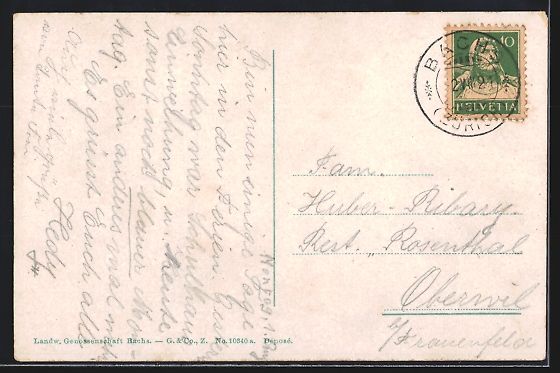 Montag 1. Aug.
Bin nun einige Tage
hier in den Ferien. Gestern
Sonntag war Schulhaus
Einweihung, u. heute
sonst noch blauer Mon-
tag. Ein anderes mal mehr
Es grüsst Euch alle
Hedy
Auf
Fam.
Huber-Ribary.
Rest. "Rosenthal
Oberwil
b/Frauenfeld
BACHS
(ZÜRICH)
10
HELVETIA
Landw. Genossenschaft Bachs. — G. & Co., Z. No. 10640 a. Deposé.